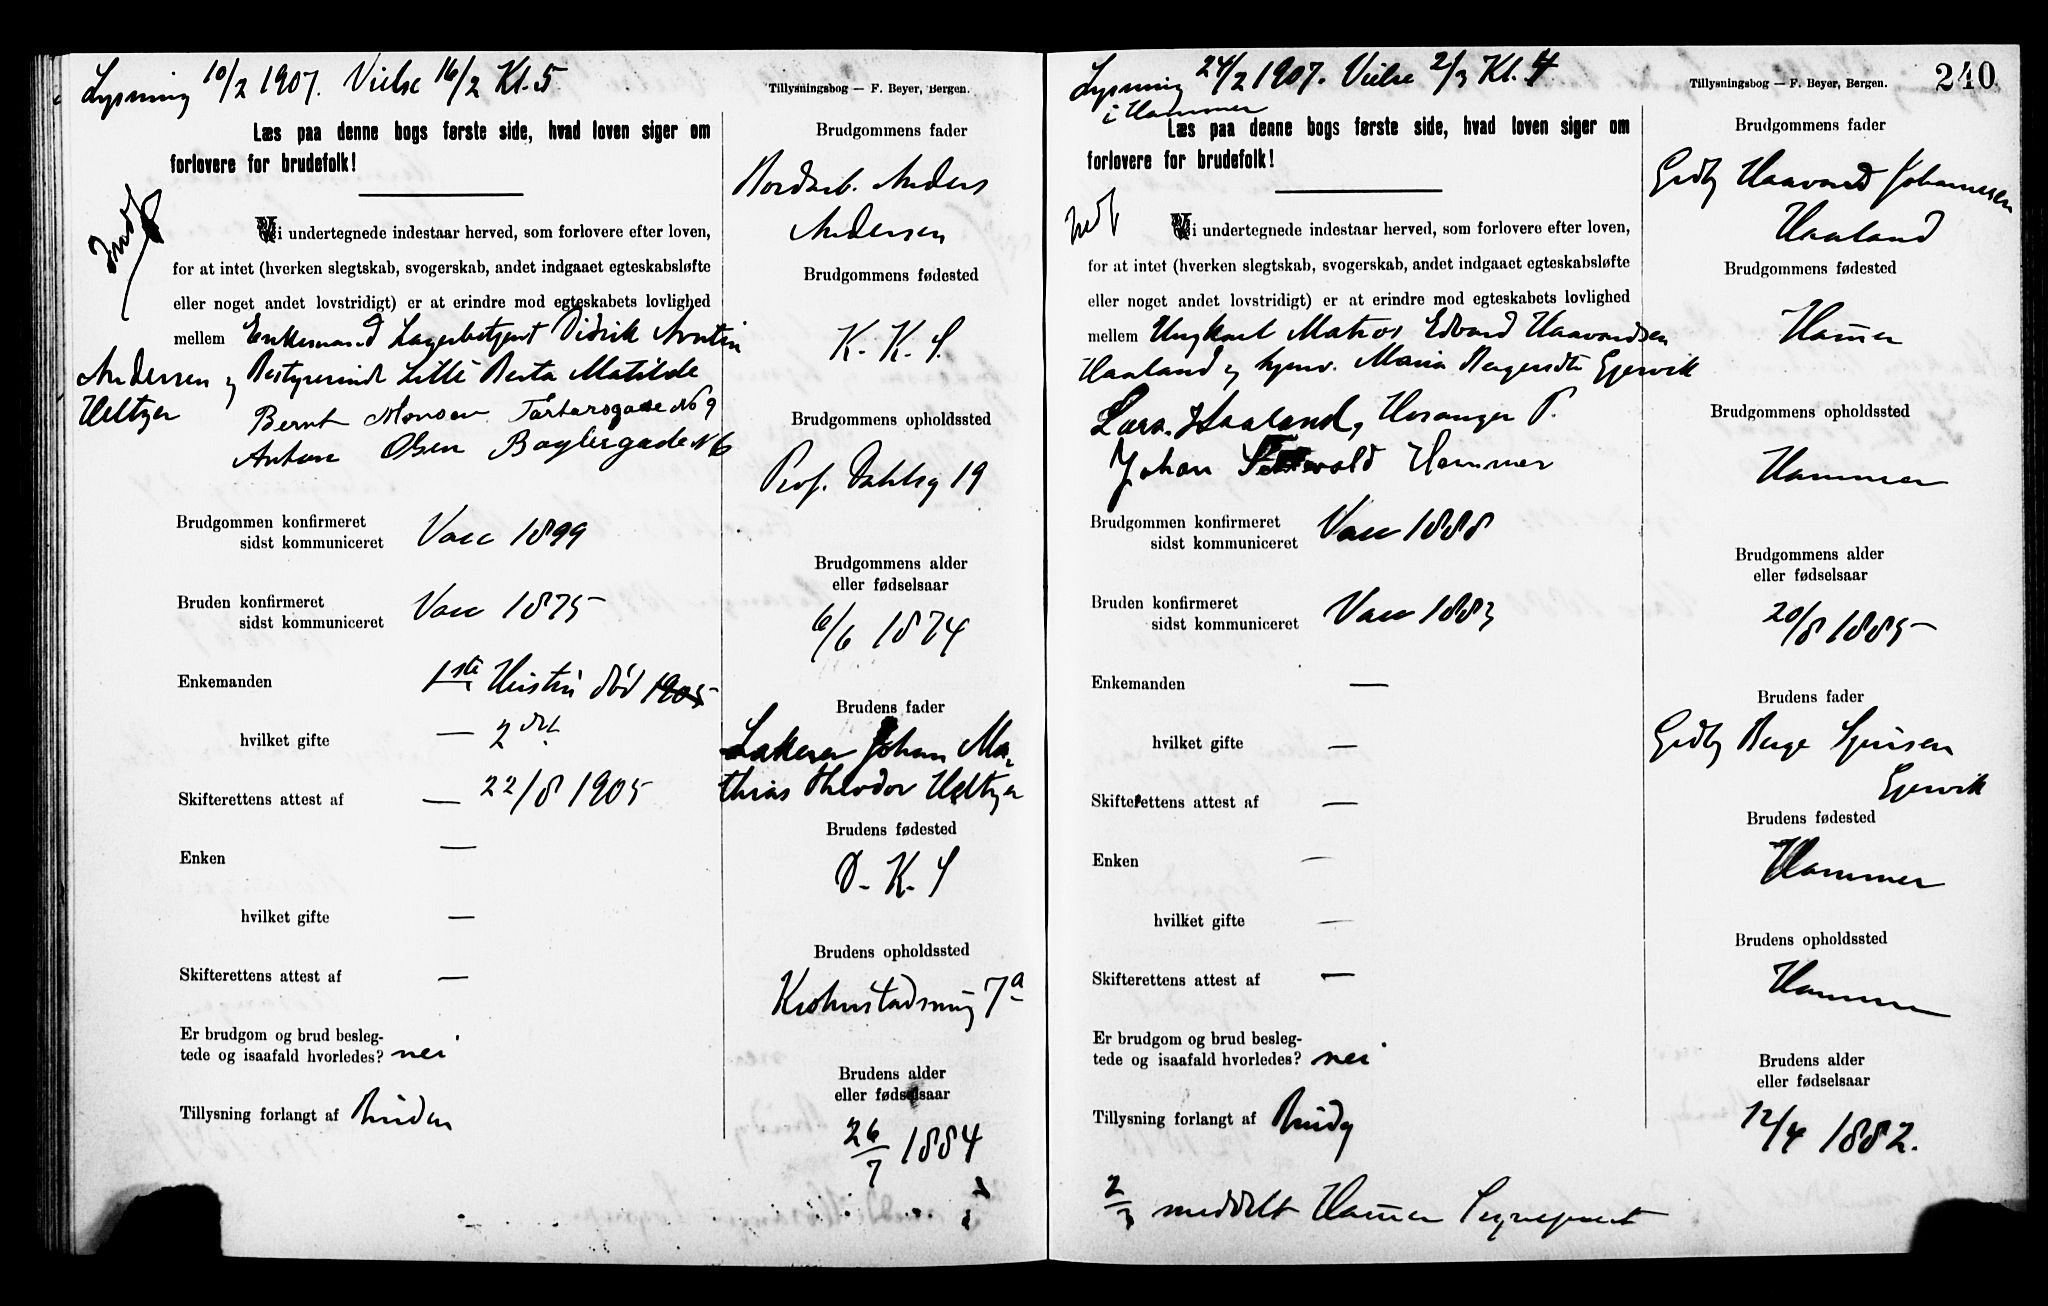 Lysning 10/2 1907. Vielse 16/2 Kl. 5
Tillysningsbog — F. Beyer, Bergen.
Læs paa denne bogs første side, hvad loven siger om
forlovere for brudefolk!
Indf
Vi undertegnede indestaar herved, som forlovere efter loven,
for at intet (hverken slegtskab, svogerskab, andet indgaaet egteskabsløfte
eller noget andet lovstridigt) er at erindre mod egteskabets lovlighed
mellem Enkemand Lagerbetjent Didrik Martin
Andersen og Bestyrerinde Lilli Berta Matilde
Heltzer
Bernt Monsen Tartargade No 9
Anton Olsen Baglergade No 6
Brudgommen konfirmeret
sidst kommuniceret Vacc 1899
Bruden konfirmeret
sidst kommuniceret Vacc 1875
Enkemanden 1ste Hustru død 1905
hvilket gifte — 2det
Skifterettens attest af — 22/8 1905
Enken —
hvilket gifte —
Skifterettens attest af —
Er brudgom og brud besleg-
tede og isaafald hvorledes? nei
Tillysning forlangt af Bruden
Brudgommens fader
Bordarb. Anders
Andersen
Brudgommens fødested
K. K. S.
Brudgommens opholdssted
Prof. Dahlsg 19
Brudgommens alder
eller fødselsaar
6/6 1874
Brudens fader
Lakerer Johan Ma-
thias Theodor Heltzer
Brudens fødested
D. K. S
Brudens opholdssted
Krohnstadsveng 7a
Brudens alder
eller fødselsaar
26/7 1884
Lysning 24/2 1907. Vielse 2/3 Kl. 4
i Hammer
Tillysningsbog — F. Beyer, Bergen.
240
Læs paa denne bogs første side, hvad loven siger om
forlovere for brudefolk!
Indf
Vi undertegnede indestaar herved, som forlovere efter loven,
for at intet (hverken slegtskab, svogerskab, andet indgaaet egteskabsløfte
eller noget andet lovstridigt) er at erindre mod egteskabets lovlighed
mellem Ungkarl Matros Edvard Haavardsen
Haaland og Pige Maria Bergesdtr Gjervik
Lars. Haaland, Hosanger P.
Johan Hammer
Brudgommen konfirmeret
sidst kommuniceret Vacc 1888
Bruden konfirmeret
sidst kommuniceret Vacc 1883
Enkemanden —
hvilket gifte —
Skifterettens attest af —
Enken —
hvilket gifte —
Skifterettens attest af —
Er brudgom og brud besleg-
tede og isaafald hvorledes? nei
Tillysning forlangt af Brudg
Brudgommens fader
Grdbg Haavard Johannesen
Haaland
Brudgommens fødested
Hamer
Brudgommens opholdssted
Hammer
Brudgommens alder
eller fødselsaar
20/8 1885
Brudens fader
Grdbg Berge Sjursen
Gjervik
Brudens fødested
Hammer
Brudens opholdssted
Hammer
Brudens alder
eller fødselsaar
12/4 1882.
2/3 meddelt Hamer Sogneprest